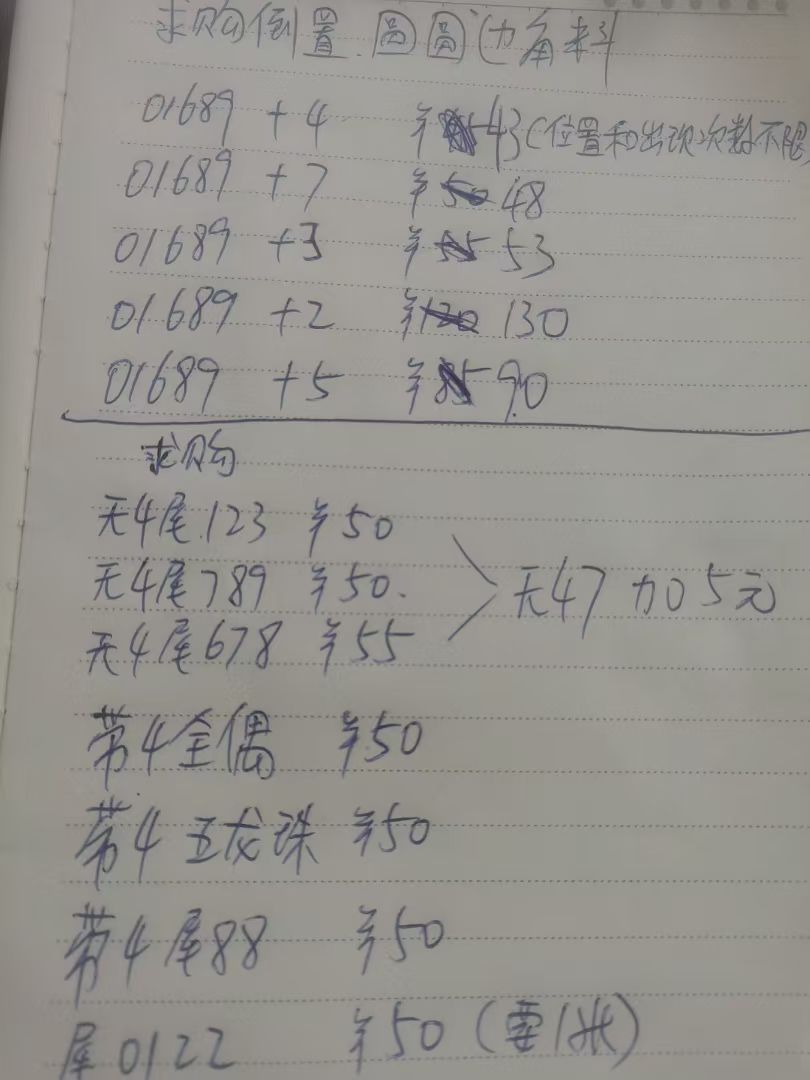 求购倒置.圆圆边角料
01689 +4 ¥43(位置和出现次数不限)
01689 +7 ¥50 48
01689 +3 ¥55 53
01689 +2 ¥120 130
01689 +5 ¥85 90
求购
无4尾123 ¥50
无4尾789 ¥50. 无47加5元
无4尾678 ¥55
带4全偶 ¥50
带4五龙珠 ¥50
带4尾88 ¥50
尾0122 ¥50(要1张)